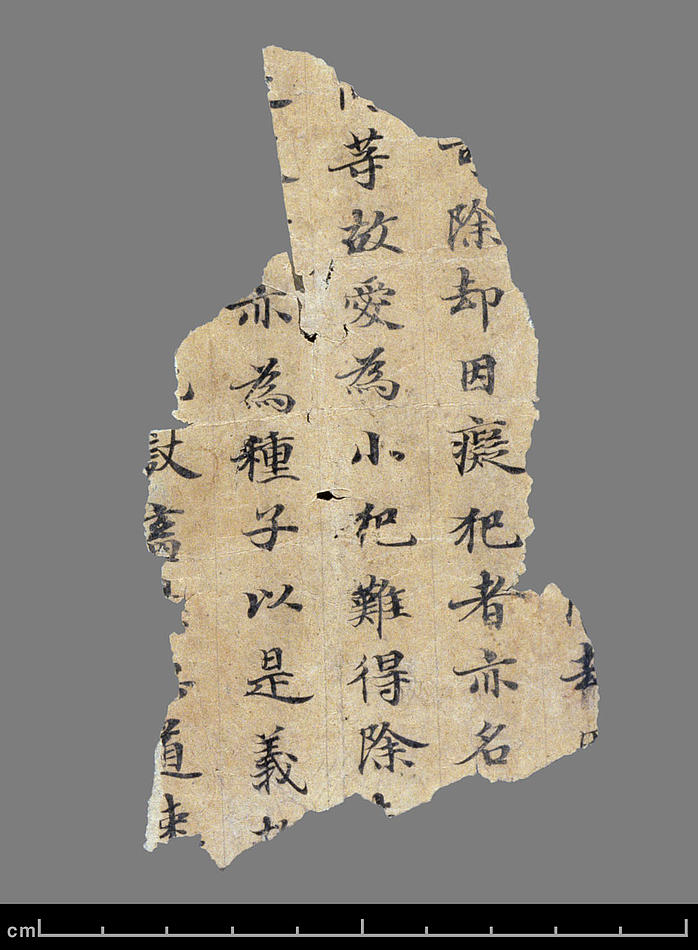 却
除却因癡犯者亦名
等故愛為小犯難得除
亦為種子以是義
道